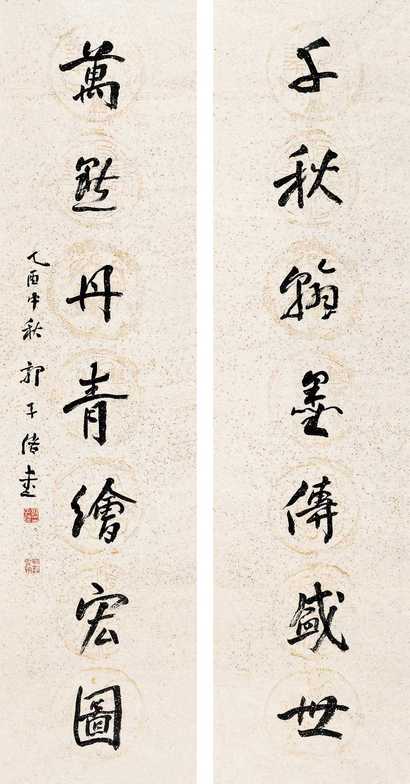 千秋翰墨傳盛世
萬點丹青繪宏圖
乙酉中秋 郭子緒書